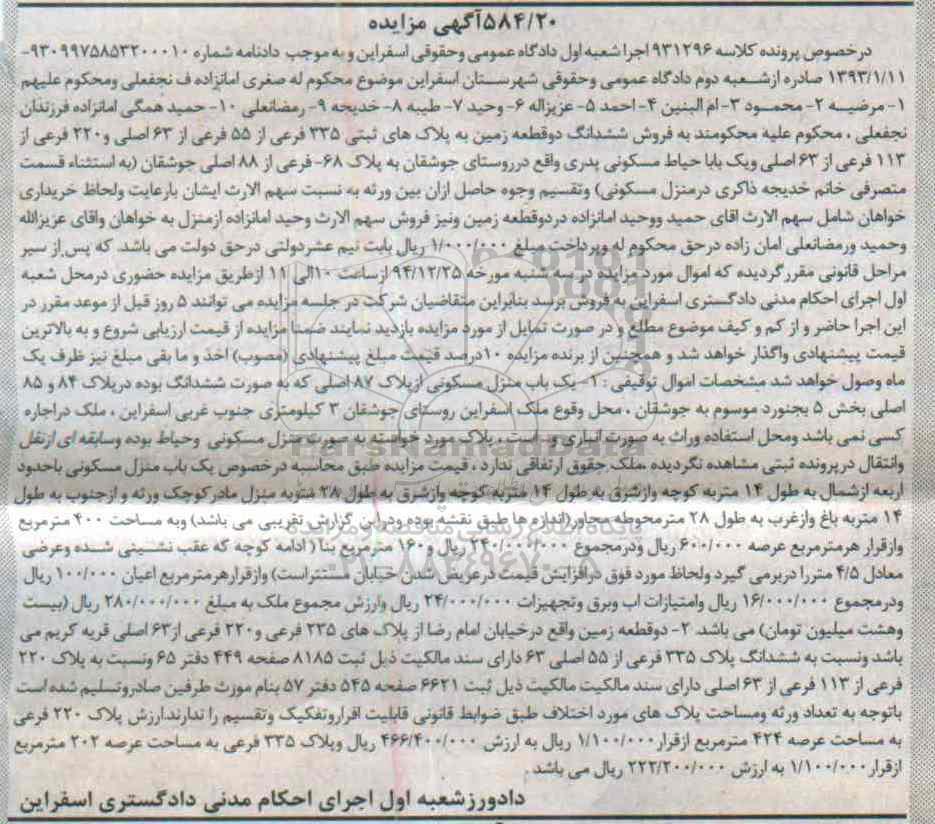 ۵۸۴/۲۰آگهی مزایده
درخصوص پرونده کلاسه ۹۳۱۲۹۶ اجرا شعبه اول دادگاه عمومی وحقوقی اسفراین و به موجب دادنامه شماره ۹۳۰۹۹۷۵۸۵۳۲۰۰۰۱۰-
۱۳۹۳/۱/۱۱ صادره ازشعبه دوم دادگاه عمومی وحقوقی شهرستان اسفراین موضوع محکوم له صغری امانزاده ف نجفعلی ومحکوم علیهم
۱- مرضیه ۲- محمود ۳- ام البنین ۴- احمد ۵- عزیزاله ۶- وحید ۷- طیبه ۸- خدیجه ۹- رمضانعلی ۱۰- حمید همگی امانزاده فرزندان
نجفعلی ، محکوم علیه محکومند به فروش ششدانگ دوقطعه زمین به پلاک های ثبتی ۳۳۵ فرعی از ۵۵ فرعی از ۶۳ اصلی و۲۲۰ فرعی از
۱۱۳ فرعی از ۶۳ اصلی ویک بابا حیاط مسکونی پدری واقع درروستای جوشقان به پلاک ۶۸- فرعی از ۸۸ اصلی جوشقان (به استثناء قسمت
متصرفی خانم خدیجه ذاکری درمنزل مسکونی) وتقسیم وجوه حاصل ازان بین ورثه به نسبت سهم الارث ایشان بارعایت ولحاظ خریداری
خواهان شامل سهم الارث اقای حمید ووحید امانزاده دردوقطعه زمین ونیز فروش سهم الارث وحید امانزاده ازمنزل به خواهان واقای عزیزالله
وحمید ورمضانعلی امان زاده درحق محکوم له وپرداخت مبلغ ۱/۰۰۰/۰۰۰ ریال بابت نیم عشردولتی درحق دولت می باشد که پس از سیر
مراحل قانونی مقرر گردیده که اموال مورد مزایده در سه شنبه مورخه ۹۴/۱۲/۲۵ ازساعت ۱۰الی ۱۱ ازطریق مزایده حضوری درمحل شعبه
اول اجرای احکام مدنی دادگستری اسفراین به فروش برسد بنابراین متقاضیان شرکت در جلسه مزایده می توانند ۵ روز قبل از موعد مقرر در
این اجرا حاضر و از کم و کیف موضوع مطلع و در صورت تمایل از مورد مزایده بازدید نمایند ضمنا مزایده از قیمت ارزیابی شروع و به بالاترین
قیمت پیشنهادی واگذار خواهد شد و همچنین از برنده مزایده ۱۰درصد قیمت مبلغ پیشنهادی (مصوب) اخذ و ما بقی مبلغ نیز ظرف یک
ماه وصول خواهد شد مشخصات اموال توقیفی : ۱- یک باب منزل مسکونی ازپلاک ۸۷ اصلی که به صورت ششدانگ بوده درپلاک ۸۴ و ۸۵
اصلی بخش ۵ بجنورد موسوم به جوشقان ، محل وقوع ملک اسفراین روستای جوشقان ۳ کیلومتری جنوب غربی اسفراین ، ملک دراجاره
کسی نمی باشد ومحل استفاده وراث به صورت انباری و... است ، پلاک مورد خواسته به صورت منزل مسکونی وحیاط بوده وسابقه ای ازنقل
وانتقال درپرونده ثبتی مشاهده نگردیده ،ملک حقوق ارتفاقی ندارد ، قیمت مزایده طبق محاسبه درخصوص یک باب منزل مسکونی باحدود
اربعه ازشمال به طول ۱۴ متربه کوچه وازشرق به طول ۱۴ متربه کوچه وازشرق به طول ۲۸ متربه منزل مادرکوچک ورثه و ازجنوب به طول
۱۴ متربه باغ وازغرب به طول ۲۸ مترمحوطه مجاور(اندازه ها طبق نقشه بوده ودراین گزارش تقریبی می باشد) وبه مساحت ۴۰۰ مترمربع
وازقرار هرمترمربع عرصه ۶۰۰/۰۰۰ ریال ودرمجموع ۲۴۰/۰۰۰/۰۰۰ ریال و۱۶۰ مترمربع بنا( ادامه کوچه که عقب نشینی شده وعرضی
معادل ۴/۵ متررا دربرمی گیرد ولحاظ مورد فوق درافزایش قیمت درعریض شدن خیابان مستتراست) وازقرارهرمترمربع اعیان ۱۰۰/۰۰۰ ریال
ودرمجموع ۱۶/۰۰۰/۰۰۰ ریال وامتیازات اب وبرق وتجهیزات ۲۴/۰۰۰/۰۰۰ ریال وارزش مجموع ملک به مبلغ ۲۸۰/۰۰۰/۰۰۰ ریال (بیست
وهشت میلیون تومان) می باشد. ۲- دوقطعه زمین واقع درخیابان امام رضا از پلاک های ۲۳۵ فرعی و۲۲۰ فرعی از۶۳ اصلی قریه کریم می
باشد ونسبت به ششدانگ پلاک ۳۳۵ فرعی از ۵۵ اصلی ۶۳ دارای سند مالکیت ذیل ثبت ۸۱۸۵ صفحه ۴۴۹ دفتر ۶۵ ونسبت به پلاک ۲۲۰
فرعی از ۱۱۳ فرعی از ۶۳ اصلی دارای سند مالکیت مالکیت ذیل ثبت ۶۶۲۱ صفحه ۵۴۵ دفتر ۵۷ بنام مورث طرفین صادروتسلیم شده است
باتوجه به تعداد ورثه ومساحت پلاک های مورد اختلاف طبق ضوابط قانونی قابلیت افرازوتفکیک وتقسیم را ندارند.ارزش پلاک ۲۲۰ فرعی
به مساحت عرصه ۴۲۴ مترمربع ازقرار۱/۱۰۰/۰۰۰ ریال به ارزش ۴۶۶/۴۰۰/۰۰۰ ریال وپلاک ۳۳۵ فرعی به مساحت عرصه ۲۰۲ مترمربع
ازقرار۱/۱۰۰/۰۰۰ به ارزش ۲۲۲/۲۰۰/۰۰۰ ریال می باشد .
دادورزشعبه اول اجرای احکام مدنی دادگستری اسفراین
ParsNamadData